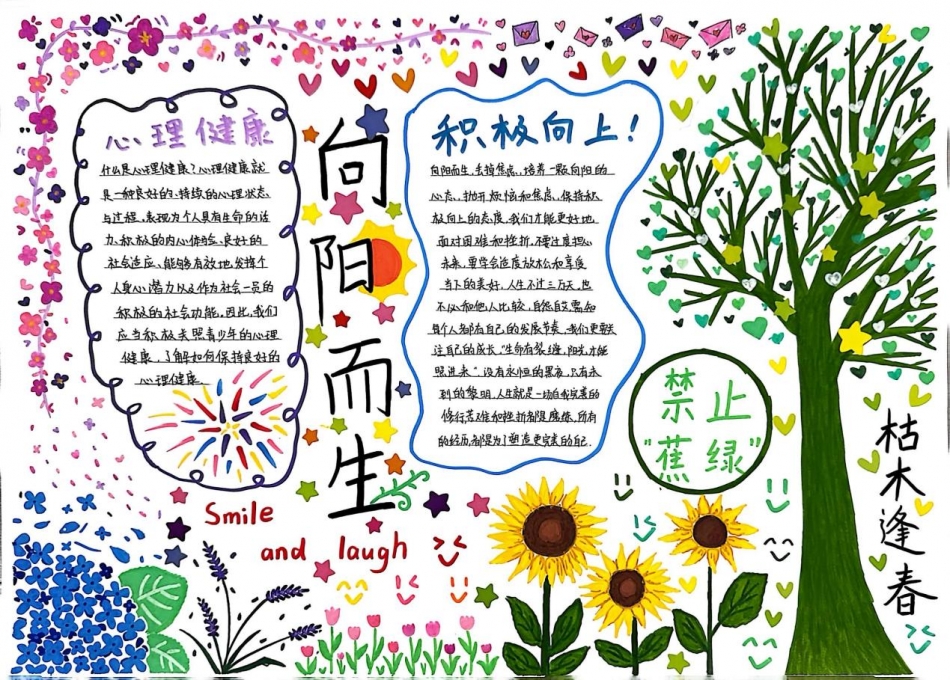 心理健康
什么是心理健康?心理健康就
是一种良好的、持续的心理状态
与过程,表现为个人具有生命的活
力、积极的内心体验、良好的
社会适应,能够有效地发挥个
人身心潜力以及作为社会一员的
积极的社会功能。因此,我们
应当积极关照青少年的心理
健康,了解如何保持良好的
心理健康。
向阳而生
积极向上!
向阳而生,丢掉焦虑,培养一颗向阳的
心态,抛开烦恼和焦虑,保持积
极向上的态度,我们才能更好地
面对困难和挫折,不要过度担心
未来,要学会适度放松和享受
当下的美好,人生不过三万天,也
不必和他人比较,自怨自艾,需知
每个人都有自己的发展节奏,我们更要关
注自己的成长,"生命有裂缝,阳光才能
照进来",没有永恒的黑夜,只有未
到的黎明,人生就是一场自我完善的
修行,苦难和挫折都是磨练,所有
的经历都是为了塑造更完美的自己.
禁止
"蕉绿"
枯木逢春
Smile
and laugh